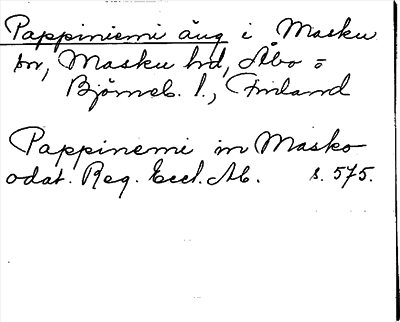 Pappiniemi äng i Masku
sn, Masku hd, Åbo =
Björneb. l., Finland
Pappinemi in Masko
odat. Reg. Eccl. Ab. s. 575.